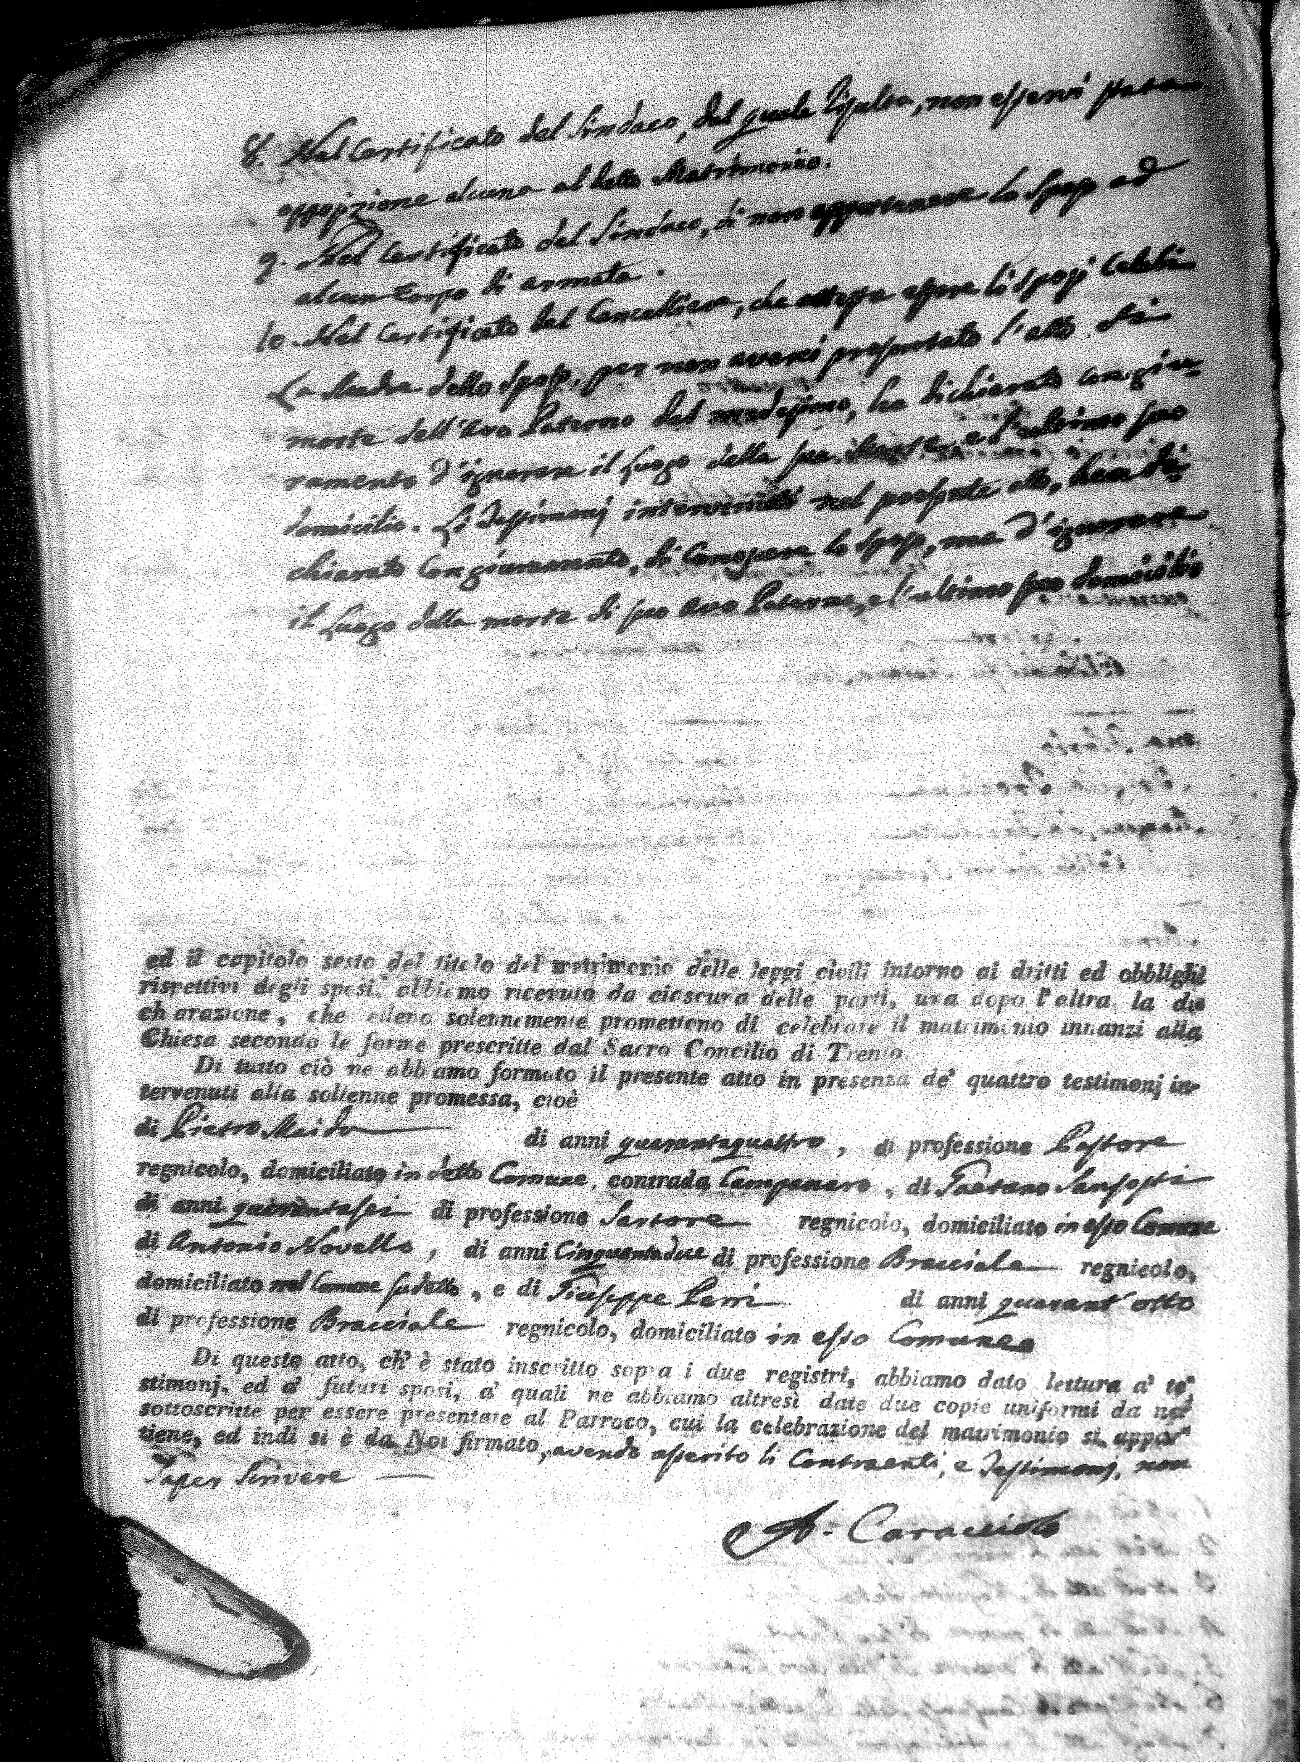 8. Nel Certificato del Sindaco, dal quale risulta, non esservi stata
opposizione alcuna al detto Matrimonio.
9. Nel Certificato del Sindaco, di non appartenere lo Sposo ad
alcun Corpo di armata.
10. Nel Certificato del Cancelliere, che attesta essere li Sposi Celibi
La Madre dello Sposo, per non aversi presentato l'atto di
morte dell'Avo Paterno del medesimo, ha dichiarato con giu-
ramento d'ignorare il luogo della sua morte, e l'ultimo suo
domicilio. Li Testimonj intervenuti nel presente atto, han di-
chiarato con giuramento, di conoscere lo Sposo, ma d'ignorare
il luogo della morte di suo Avo Paterno, e l'ultimo suo domicilio
ed il capitolo sesto del titolo del matrimonio delle leggi civili intorno ai dritti ed obblighi
rispettivi degli sposi, abbiamo ricevuto da ciascuna delle parti, una dopo l'altra, la di-
chiarazione, che elleno solennemente promettono di celebrare il matrimonio innanzi alla
Chiesa secondo le forme prescritte dal Sacro Concilio di Trento.
Di tutto ciò ne abbiamo formato il presente atto in presenza de' quattro testimonj in-
tervenuti alla sollenne promessa, cioè
di Pietro Maida di anni quarantaquattro, di professione Pastore
regnicolo, domiciliato in detto Comune, contrada Campanaro, di Gaetano Sansosti
di anni quarantasei di professione Sartore regnicolo, domiciliato in esso Comune
di Antonio Novello, di anni Cinquantadue di professione Bracciale regnicolo,
domiciliato nel Comune sudetto, e di Giuseppe Perri di anni quarant'otto
di professione Bracciale regnicolo, domiciliato in esso Comune
Di questo atto, ch' è stato inscritto sopra i due registri, abbiamo dato lettura a' te-
stimonj, ed a' futuri sposi, a' quali ne abbiamo altresì date due copie uniformi da noi
sottoscritte per essere presentate al Parroco, cui la celebrazione del matrimonio si appar-
tiene, ed indi si è da Noi firmato, avendo asserito li Contraenti, e Testimonj, non
saper Scrivere
A. Caracciolo